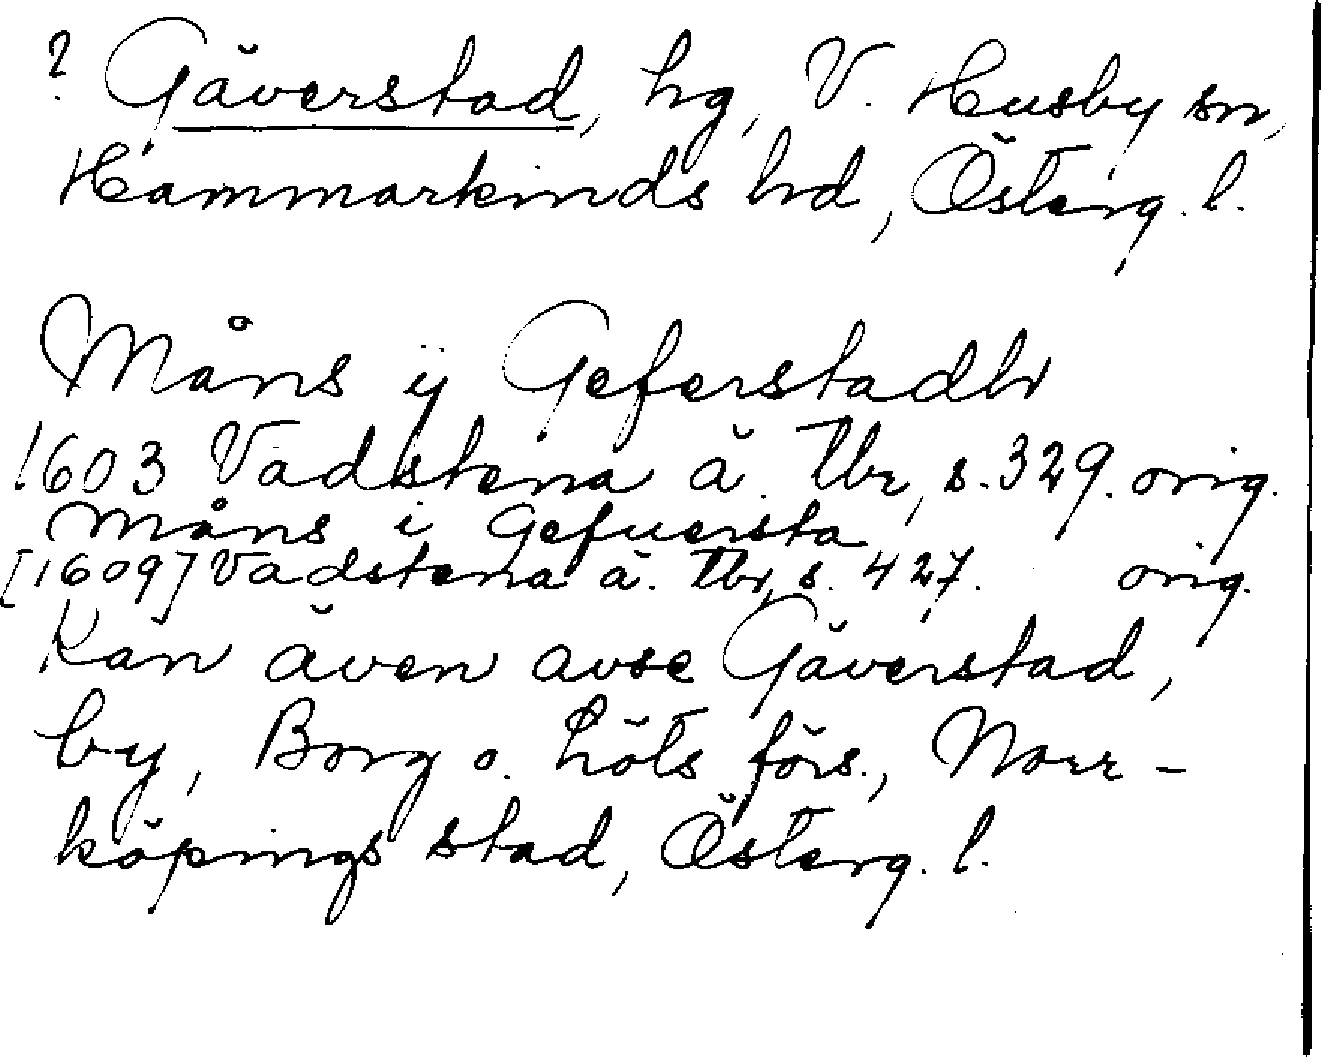 ? Gäverstad, hg, V. Husby sn,
Hammarkinds hd, Österg. l.
Måns ÿ Geferstadh
1603 Vadstena ä. tbr, s. 329. orig.
Måns i Gefuersta
[1609] Vadstena ä. tbr, s. 427. orig.
Kan även avse Gäverstad,
by, Borg o. Löts förs., Norr-
köpings stad, Österg. l.